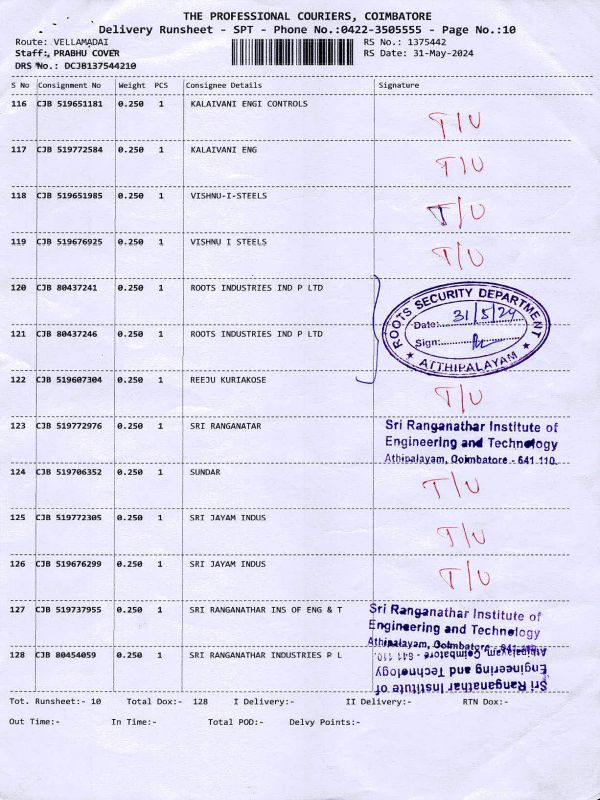 THE PROFESSIONAL COURIERS, COIMBATORE
Delivery Runsheet - SPT - Phone No.:0422-3505555 - Page No.:10
Route: VELLAMADAI RS No.: 1375442
Staff:, PRABHU COVER RS Date: 31-May-2024
DRS No.: DCJB137544210
S No Consignment No Weight PCS Consignee Details Signature
116 CJB 519651181 0.250 1 KALAIVANI ENGI CONTROLS T/U
117 CJB 519772584 0.250 1 KALAIVANI ENG T/U
118 CJB 519651985 0.250 1 VISHNU-I-STEELS T/U
119 CJB 519676925 0.250 1 VISHNU I STEELS T/U
120 CJB 80437241 0.250 1 ROOTS INDUSTRIES IND P LTD
ROOTS SECURITY DEPARTMENT
Date: 31/5/24
121 CJB 80437246 0.250 1 ROOTS INDUSTRIES IND P LTD
Sign:
ATTHIPALAYAM
122 CJB 519607304 0.250 1 REEJU KURIAKOSE T/U
123 CJB 519772976 0.250 1 SRI RANGANATAR Sri Ranganathar Institute of
Engineering and Technology
Athipalayam, Coimbatore - 641 110.
124 CJB 519706352 0.250 1 SUNDAR T/U
125 CJB 519772305 0.250 1 SRI JAYAM INDUS T/U
126 CJB 519676299 0.250 1 SRI JAYAM INDUS T/U
127 CJB 519737955 0.250 1 SRI RANGANATHAR INS OF ENG & T Sri Ranganathar Institute of
Engineering and Technology
Athipalayam, Coimbatore - 641 110.
128 CJB 80454059 0.250 1 SRI RANGANATHAR INDUSTRIES P L
Sri Ranganathar Institute of
Engineering and Technology
Athipalayam, Coimbatore - 641 110.
Tot. Runsheet:- 10 Total Dox:- 128 I Delivery:- II Delivery:- RTN Dox:-
Out Time:- In Time:- Total POD:- Delvy Points:-